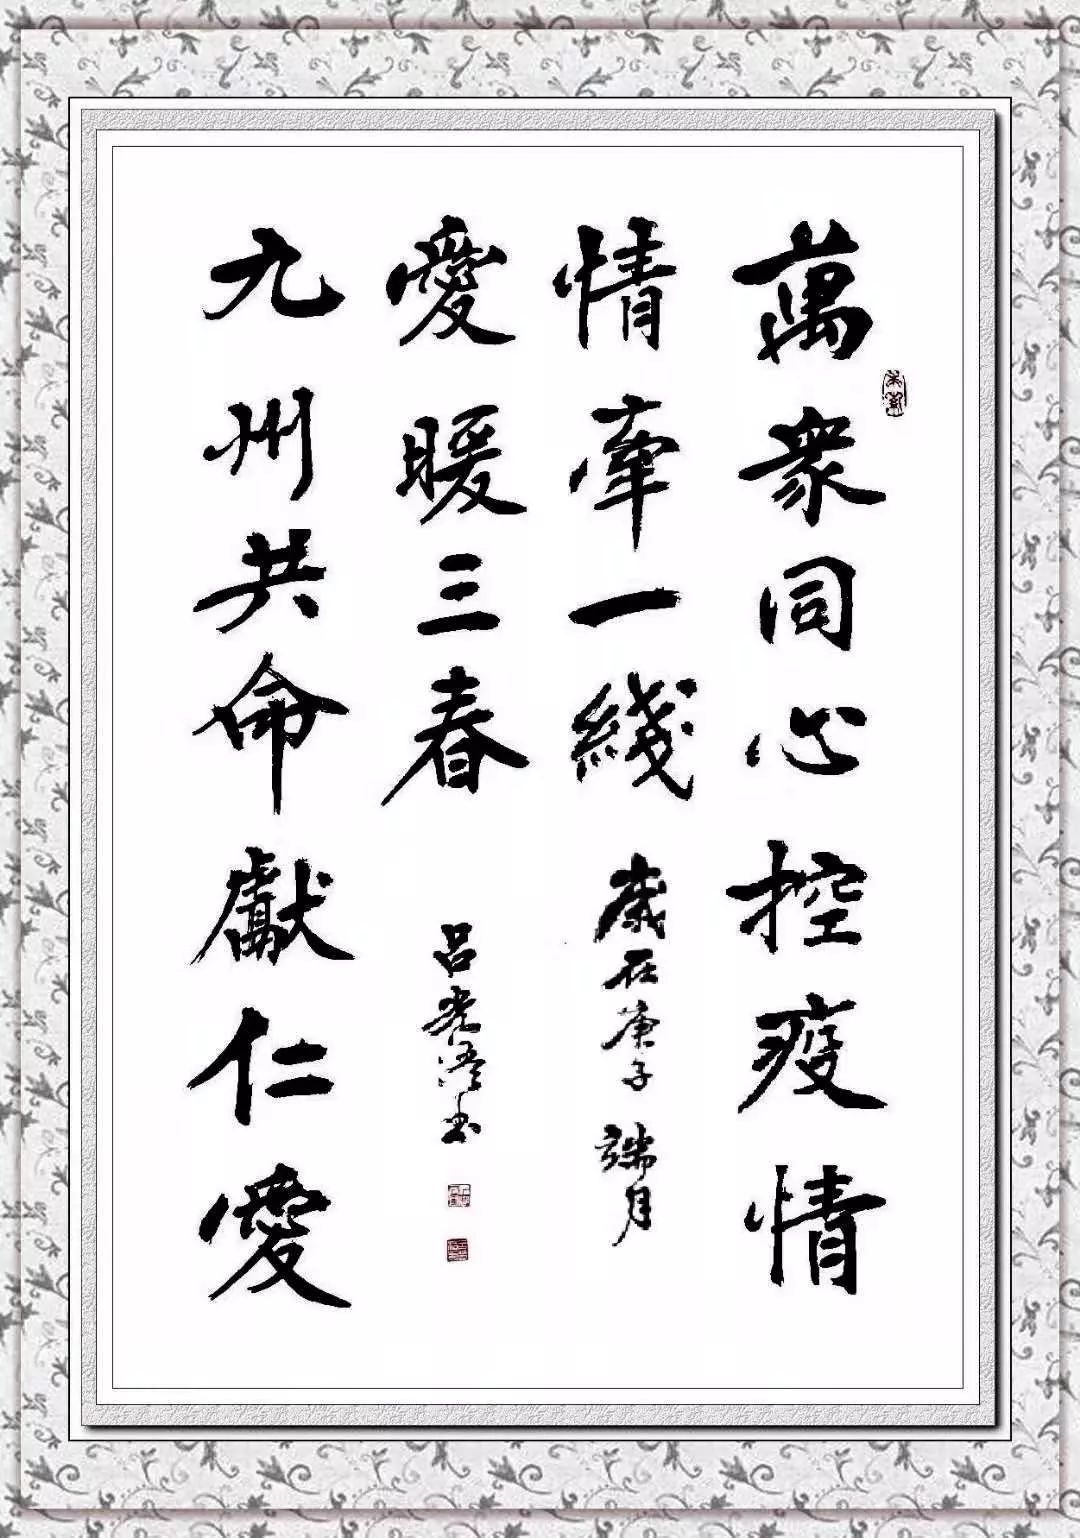 萬衆同心控疫情
情牽一綫
歲在庚子端月
九州共命獻仁愛
愛暖三春
呂光书